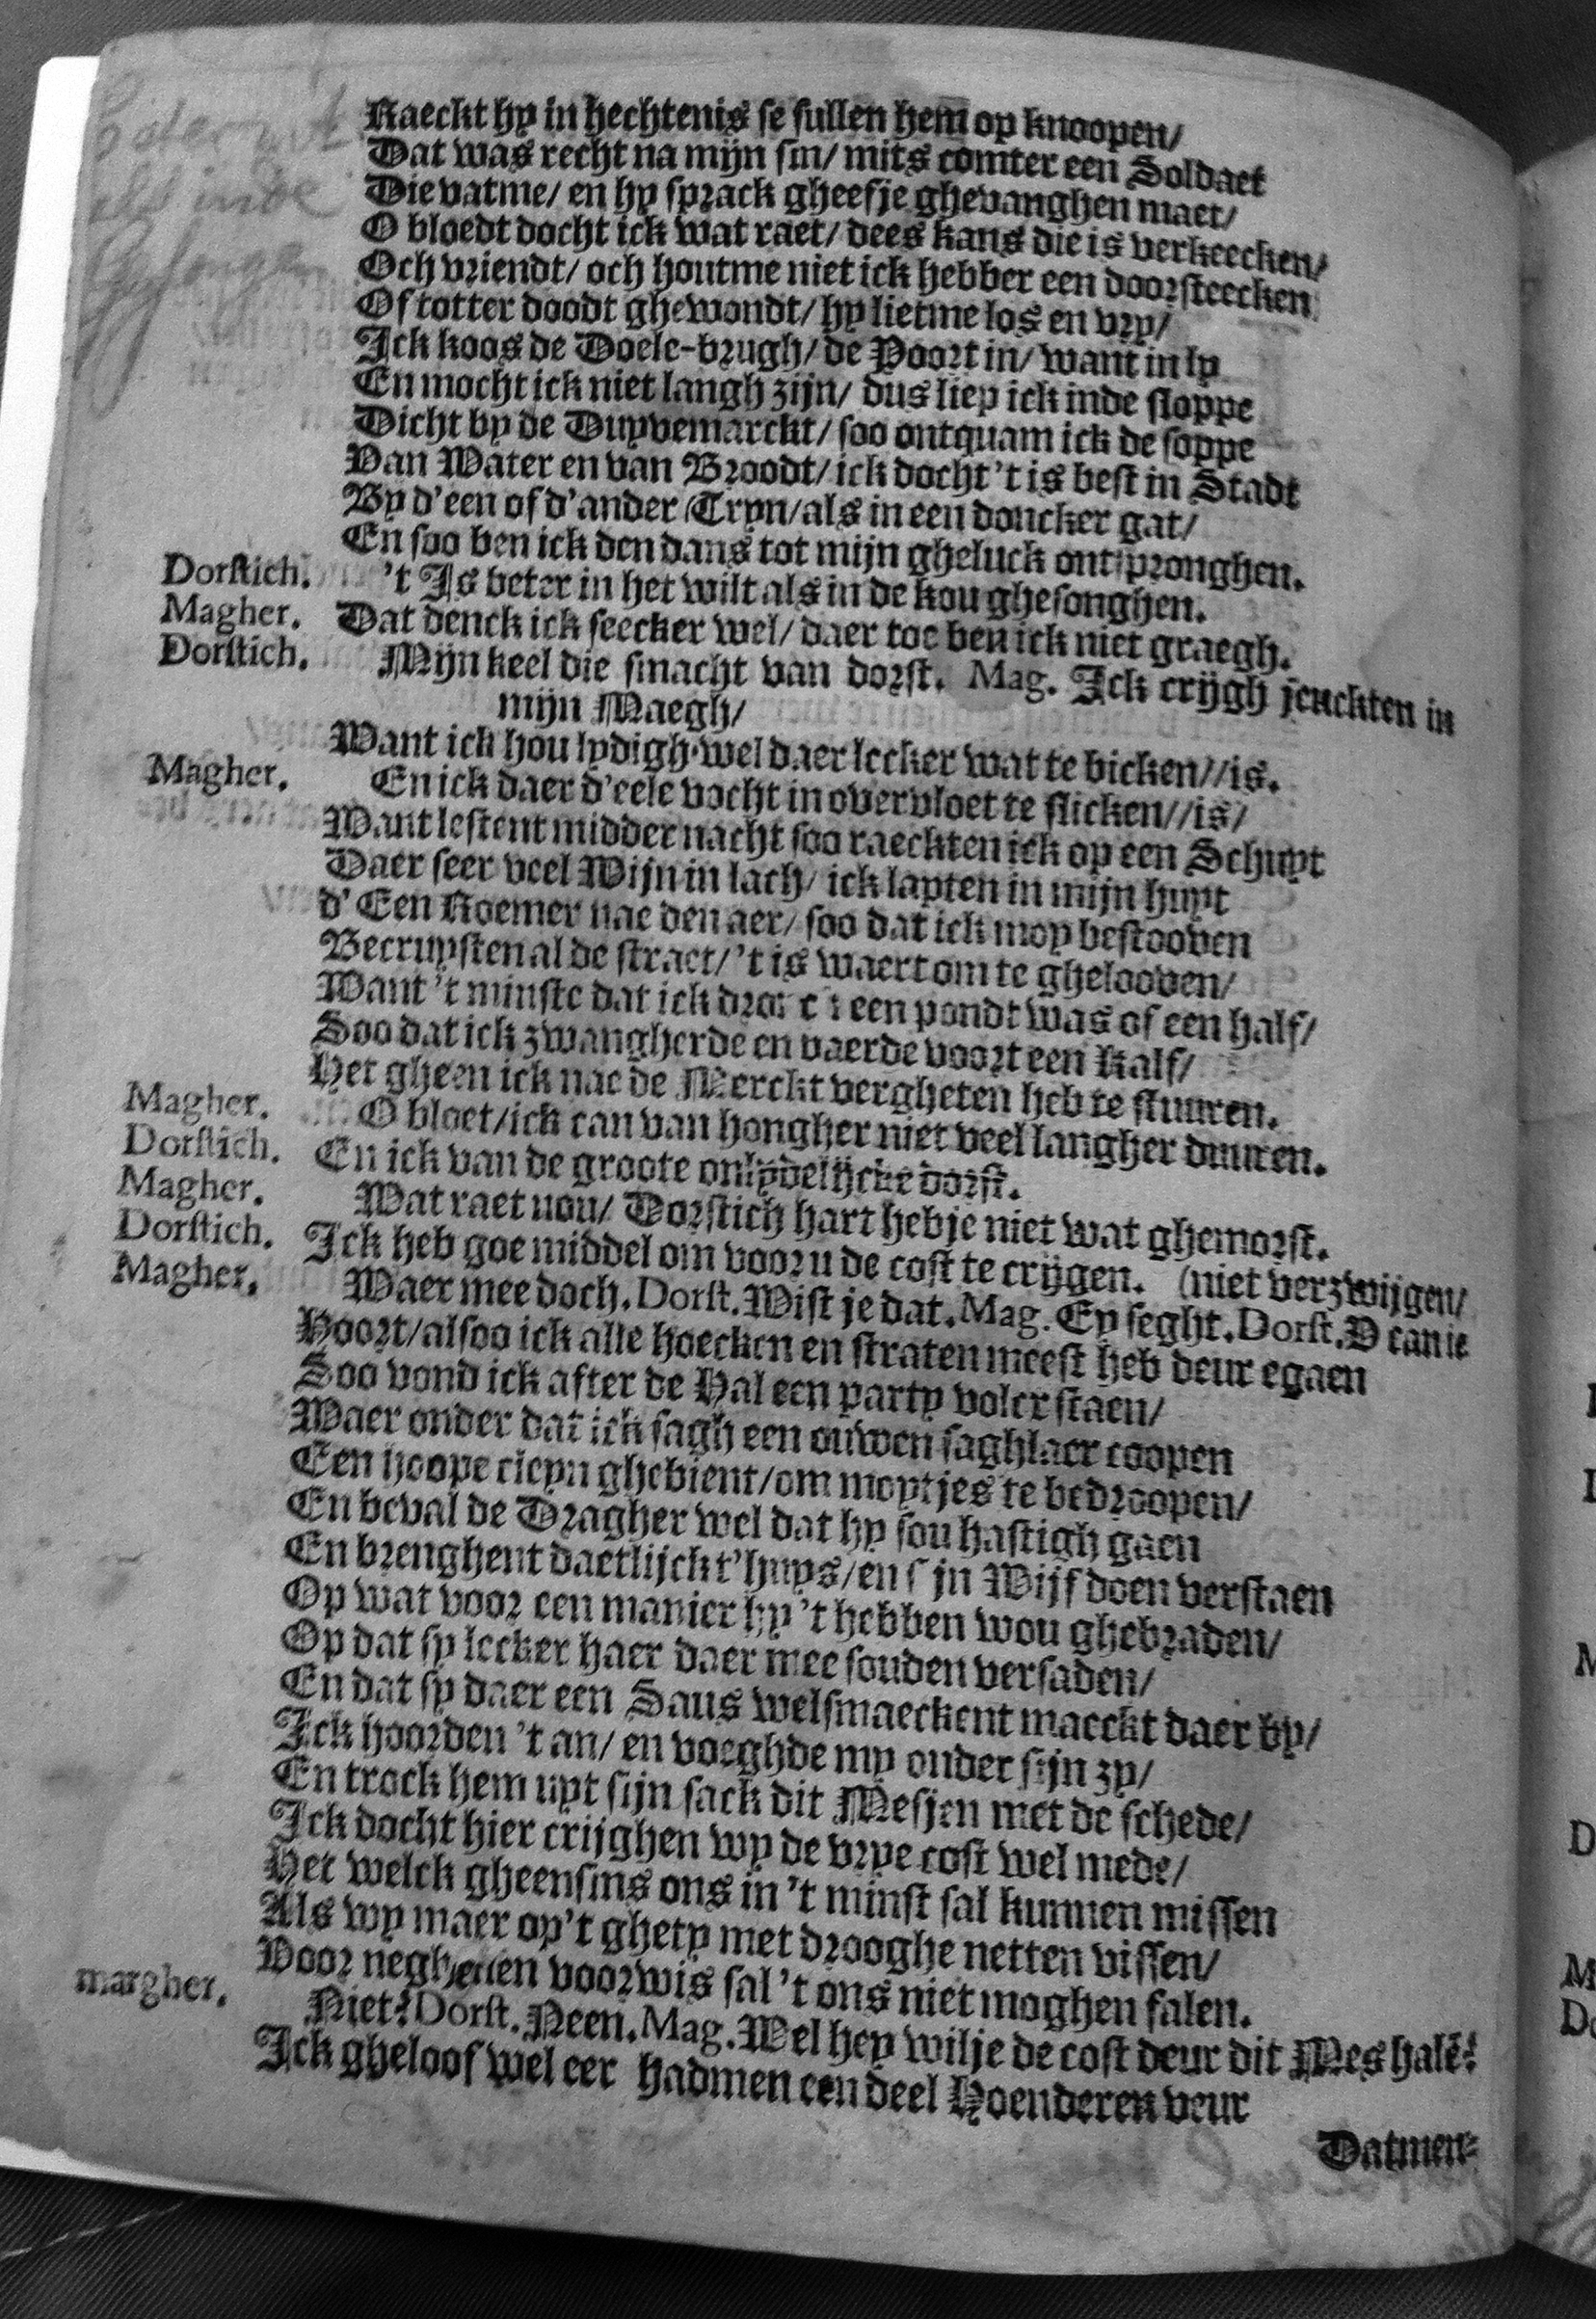 Raeckt hy in hechtenis se sullen hem op knoopen/
Dat was recht na mijn sin/ mits comter een Soldaet
Die vatme/ en hy sprack gheefje ghevanghen maet/
O bloedt docht ick wat raet/ dees kans die is verkeecken/
Och vriendt/ och houtme niet ick hebber een doorsteecken
Of totter doodt ghewondt/ hy lietme los en vry/
Ick koos de Doele-brugh/ de Poort in/ want in ly
En mocht ick niet langh zijn/ dus liep ick inde sloppe
Dicht by de Duyvemarckt/ soo ontquam ick de soppe
Van Water en van Broodt/ ick docht 't is best in Stadt
By d'een of d'ander Tryn/ als in een doncker gat/
En soo ben ick den dans tot mijn gheluck ontspronghen.
Dorstich. 't Is beter in het wilt als in de kou ghesonghen.
Magher. Dat denck ick seecker wel/ daer toe ben ick niet graegh.
Dorstich. Mijn keel die smacht van dorst. Mag. Ick crijgh jeuckten in
mijn Maegh/
Want ick hou lydigh wel daer lecker wat te bicken//is.
Magher. En ick daer d'eele vocht in overvloet te slicken//is/
Want lestent midder nacht soo raeckten ick op een Schuyt
Daer seer veel Wijn in lach/ ick lapten in mijn huyt
d'Een Roemer nae den aer/ soo dat ick moy bestooven
Becruysten al de straet/ 't is waert om te ghelooven/
Want 't minste dat ick een pondt was of een half/
Soo dat ick zwangherde en vaerde voort een Kalf/
Het gheen ick nae de Merckt vergheten heb te stuuren.
Magher. O bloet/ick can van hongher niet veel langher duuren.
Dorstich. En ick van de groote onlydelijcke dorst.
Magher. Wat raet nou/ Dorstich hart hebje niet wat ghemorst.
Dorstich. Ick heb goe middel om voor u de cost te crijgen. (niet verzwijgen/
Magher. Waer mee doch. Dorst. Wist je dat. Mag. Ey seght. Dorst. D can ic
Hoort/alsoo ick alle hoecken en straten meest heb deur egaen
Soo vond ick after de Hal een party volcr staen/
Waer onder dat ick sagh een ouwen saghlaer coopen
Een hoope cleyn ghebient/om moytjes te bedroopen/
En beval de Dragher wel dat hy sou hastigh gaen
En brenghent daetlijck t'huys/en sijn Wijf doen verstaen
Op wat voor een manier hy 't hebben wou ghebraden/
Op dat sy lecker haer daer mee souden versaden/
En dat sy daer een Saus welsmaeckent maeckt daer by/
Ick hoorden 't an/ en voeghde my onder sijn zy/
En trock hem uyt sijn sack dit Mesjen met de schede/
Ick docht hier crijghen wy de vrye cost wel mede/
Het welck gheensins ons in 't minst sal kunnen missen
Als wy maer op't ghety met drooghe netten vissen/
Voor neghenen voorwis sal 't ons niet moghen falen.
margher. Niet? Dorst. Neen. Mag. Wel hey wilje de cost deur dit Mes halē?
Ick gheloof wel eer hadmen een deel Hoenderen veur
Datmen-